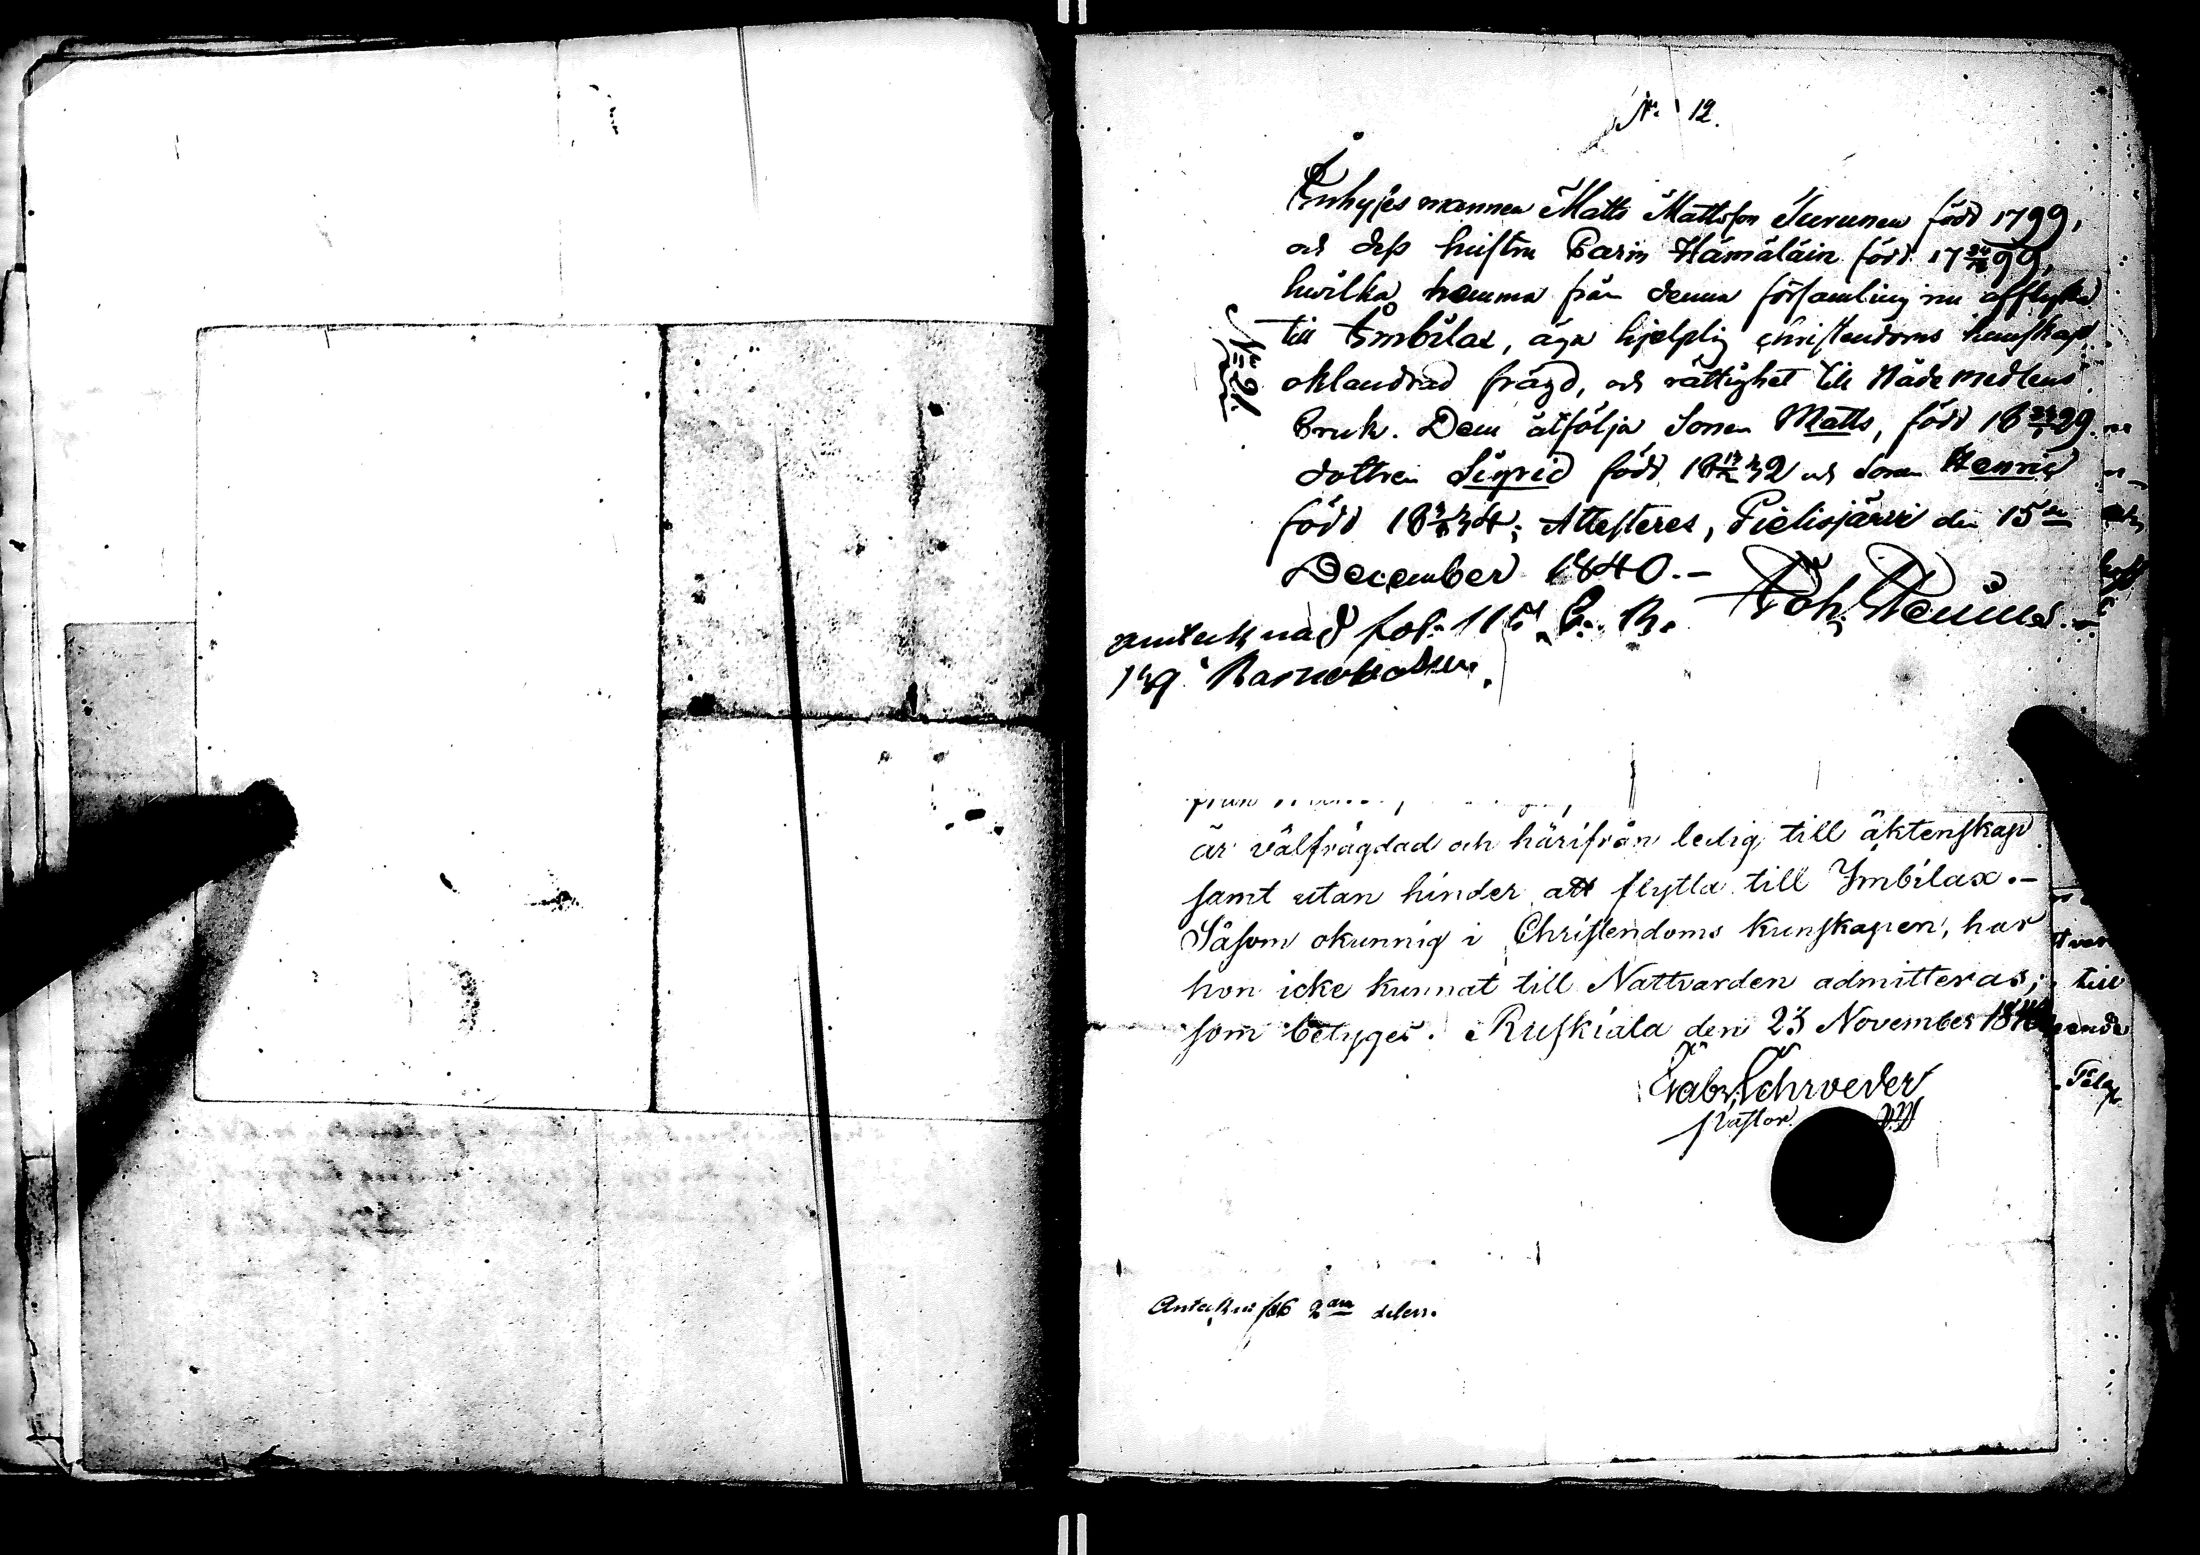 No 12.
Inhyses mannen Matts Mattsson Turunen född 1799,
och dess hustru Carin Hämäläin född 17 99,
hvilka hemma från denna församling nu afflytta
till Imbilax, äga hjelplig christendoms kunskap
oklandrad frägd, och rättighet till Nådemedlens
Bruk. Dem åtfölja Sonen Matts, född 18 29
dottren Sigrid född 18 32 och Sonen Henric
född 18 34; Attesteres, Pielisjärvi den 15de
December 1840.-
No 21.
antecknad fol. 115
är välfrägdad och härifrån ledig till äktenskap
samt utan hinder att flytta till Ymbilax.-
Såsom okunnig i Christendoms kunskapen, har
hon icke kunnat till Nattvarden admitteras;
som betyges. Ruskiala den 23 November 1840
Gabr. Schroeder
Pastor.
till